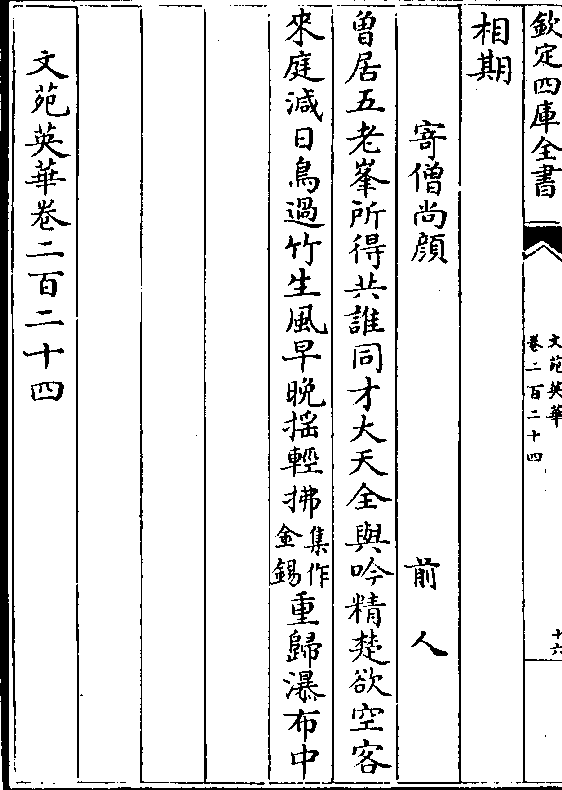 欽定四庫全書
文苑英華
卷二百二十四
十六
相期
寄僧尚顔
前人
曾居五老峯所得共誰同才大天全與吟精楚欲空客
來庭減日鳥過竹生風早晚揺輕拂集作金錫重歸瀑布中
文苑英華卷二百二十四